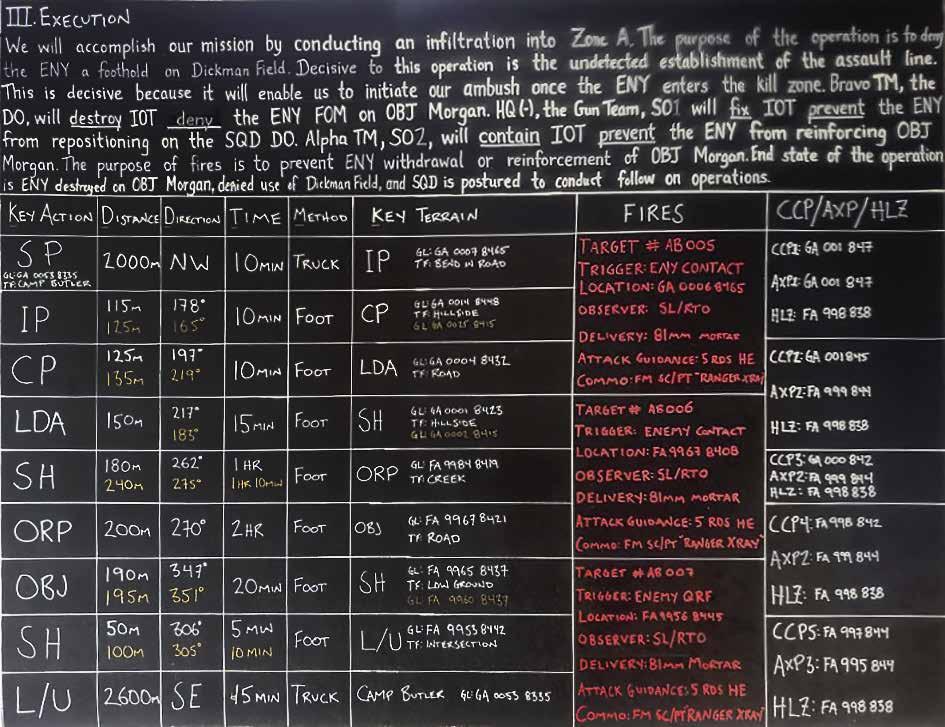 III. EXECUTION
We will accomplish our mission by conducting an infiltration into Zone A. The purpose of the operation is to deny
the ENY a foothold on Dickman Field. Decisive to this operation is the undetected establishment of the assault line.
This is decisive because it will enable us to initiate our ambush once the ENY enters the kill zone. Bravo TM, the
DO, will destroy IOT deny the ENY FOM on OBJ Morgan. HQ(-), the Gun Team, SO1 will fix IOT prevent the ENY
from repositioning on the SQD DO. Alpha TM, SO2, will contain IOT prevent the ENY from reinforcing OBJ
Morgan. The purpose of fires is to prevent ENY withdrawal or reinforcement of OBJ Morgan. End state of the operation
is ENY destroyed on OBJ Morgan, denied use of Dickman Field, and SQD is postured to conduct follow on operations.
KEY ACTION DISTANCE DIRECTION TIME METHOD KEY TERRAIN FIRES CCP/AXP/HLZ
SP 2000m NW 10 MIN TRUCK IP
GL: GA 0053 8335
TF: CAMP BUTLER
GL: GA 0007 8465
TF: BEND IN ROAD
IP 115m 178° 10 MIN FOOT CP
125m 165°
GL: GA 0014 8448
TF: HILLSIDE
GL: GA 0025 8415
CP 125m 197° 10 MIN FOOT LDA
135m 219°
GL: GA 0004 8432
TF: ROAD
LDA 150m 217° 15 MIN FOOT SH
183°
GL: GA 0001 8423
TF: HILLSIDE
GL: GA 0002 8415
SH 180m 262° 1 HR FOOT ORP
240m 275° 1 HR 10 MIN
GL: FA 9984 8419
TF: CREEK
ORP 200m 270° 2 HR FOOT OBJ
GL: FA 9967 8421
TF: ROAD
OBJ 190m 347° 20 MIN FOOT SH
195m 351°
GL: FA 9965 8437
TF: LOW GROUND
GL: FA 9960 8437
SH 50m 306° 5 MIN FOOT L/U
100m 305° 10 MIN
GL: FA 9953 8442
TF: INTERSECTION
L/U 2600m SE 45 MIN TRUCK CAMP BUTLER GL: GA 0053 8335
TARGET # AB005
TRIGGER: ENY CONTACT
LOCATION: GA 0006 8465
OBSERVER: SL/RTO
DELIVERY: 81mm MORTAR
ATTACK GUIDANCE: 5 RDS HE
COMMO: FM SC/PT "RANGER XRAY"
TARGET # AB006
TRIGGER: ENEMY CONTACT
LOCATION: FA 9967 8408
OBSERVER: SL/RTO
DELIVERY: 81MM MORTAR
ATTACK GUIDANCE: 5 RDS HE
COMMO: FM SC/PT "RANGER XRAY"
TARGET # AB007
TRIGGER: ENEMY QRF
LOCATION: FA 9956 8445
OBSERVER: SL/RTO
DELIVERY: 81MM MORTAR
ATTACK GUIDANCE: 5 RDS HE
COMMO: FM SC/PT "RANGER XRAY"
CCP1: GA 001 847
AXP1: GA 001 847
HLZ: FA 998 838
CCP2: GA 001 845
AXP2: FA 999 844
HLZ: FA 998 838
CCP3: GA 000 842
AXP2: FA 999 844
HLZ: FA 998 838
CCP4: FA 998 842
AXP2: FA 999 844
HLZ: FA 998 838
CCP5: FA 997 844
AXP3: FA 995 844
HLZ: FA 998 838